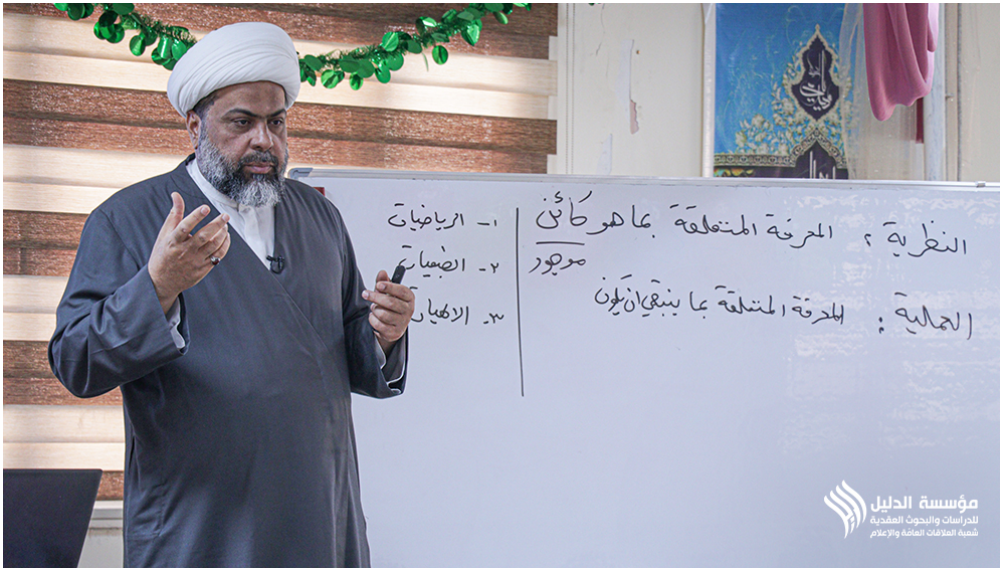 النظرية : المعرفة المتعلقة بما هو كائن
موجود
العملية : المعرفة المتعلقة بما ينبغي ان يكون
١- الرياضيات
٢- الطبعيات
٣- الالهيات
مؤسسة الدليل
للدراسات والبحوث العقدية
شعبة العلاقات العامة والإعلام